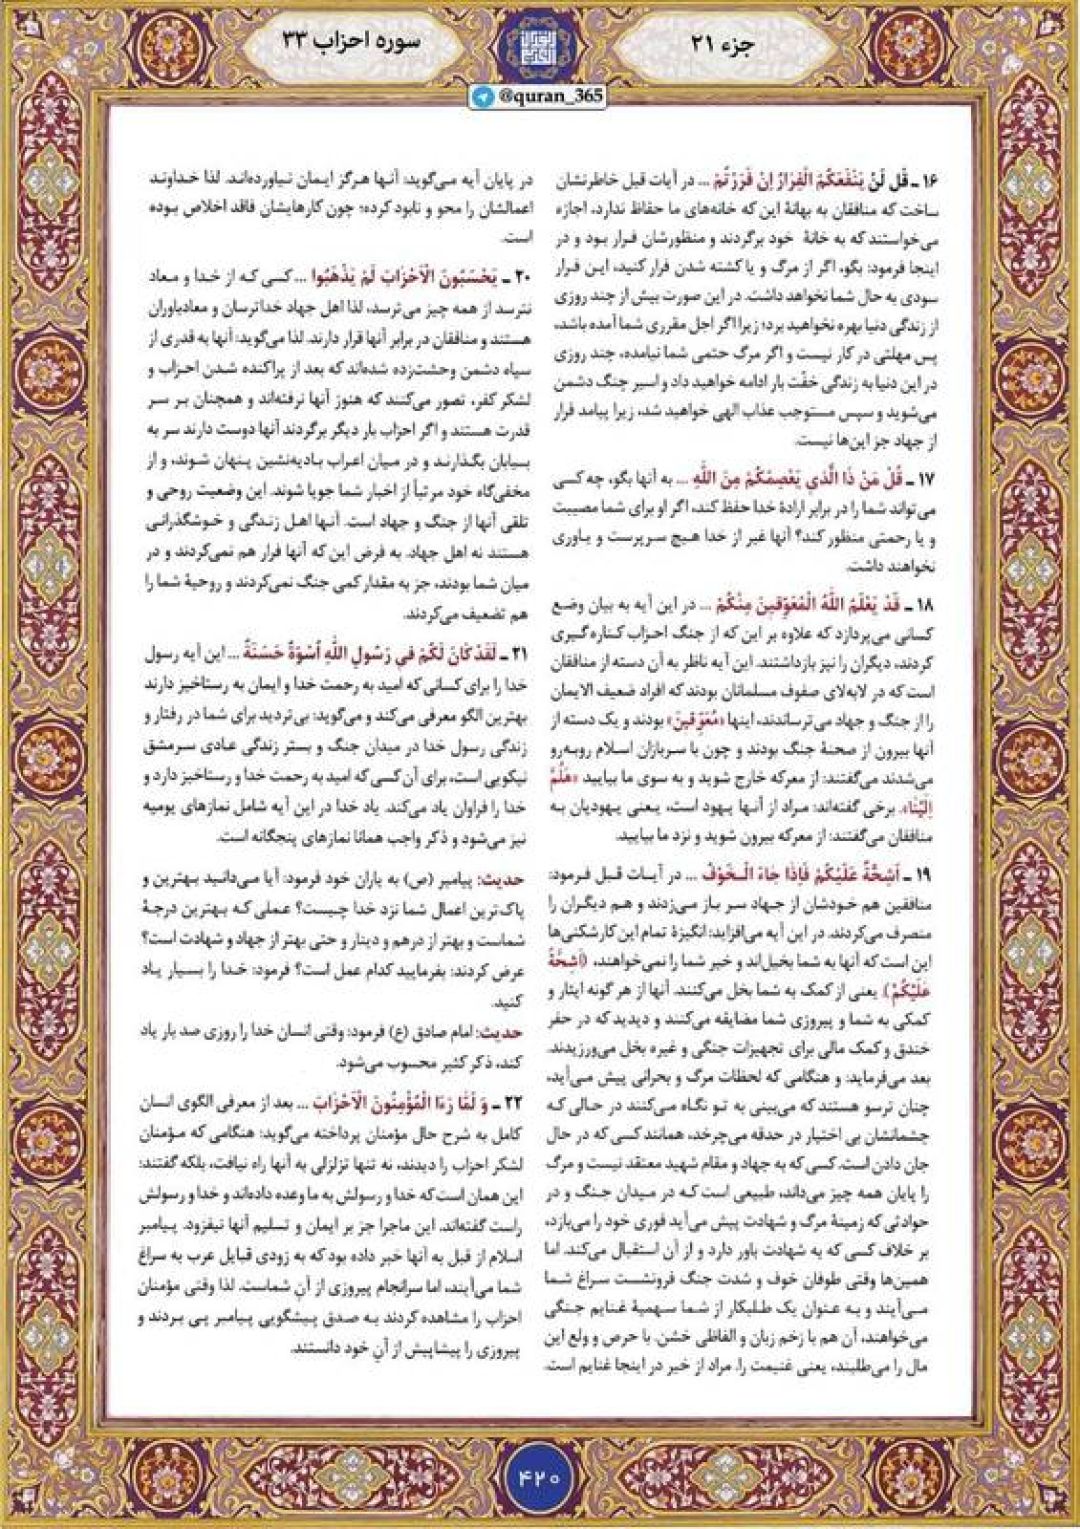 جزء ۲۱
سوره احزاب ۳۳
@quran_365
۱۶ ـ قُل لَّنْ یَنْفَعَکُمُ الْفِرَارُ إِنْ فَرَرْتُمْ ... در آیات قبل خاطرنشان
ساخت که منافقان به بهانهٔ این که خانه‌های ما حفاظ ندارد، اجازه
می‌خواستند که به خانهٔ خود برگردند و منظورشان فرار بود و در
اینجا فرمود: بگو، اگر از مرگ و یا کشته شدن فرار کنید، این فرار
سودی به حال شما نخواهد داشت. در این صورت بیش از چند روزی
از زندگی دنیا بهره نخواهید برد؛ زیرا اگر اجل مقرری شما آمده باشد،
پس مهلتی در کار نیست و اگر مرگ حتمی شما نیامده، چند روزی
در این دنیا به زندگی خفّت بار ادامه خواهید داد و اسیر چنگ دشمن
می‌شوید و سپس مستوجب عذاب الهی خواهید شد، زیرا پیامد فرار
از جهاد جز این‌ها نیست.
۱۷ ـ قُلْ مَنْ ذَا الَّذِي یَعْصِمُکُمْ مِنَ اللَّهِ ... به آنها بگو، چه کسی
می‌تواند شما را در برابر ارادهٔ خدا حفظ کند، اگر او برای شما مصیبت
و یا رحمتی منظور کند؟ آنها غیر از خدا هیچ سرپرست و یاوری
نخواهند داشت.
۱۸ ـ قَدْ یَعْلَمُ اللَّهُ الْمُعَوِّقِینَ مِنْکُمْ ... در این آیه به بیان وضع
کسانی می‌پردازد که علاوه بر این که از جنگ احزاب کناره گیری
کردند، دیگران را نیز بازداشتند. این آیه ناظر به آن دسته از منافقان
است که در لابه‌لای صفوف مسلمانان بودند که افراد ضعیف الایمان
را از جنگ و جهاد می‌ترساندند، اینها «مُعَوِّقِینَ» بودند و یک دسته از
آنها بیرون از صحنهٔ جنگ بودند و چون با سربازان اسلام روبه‌رو
می‌شدند می‌گفتند: از معرکه خارج شوید و به سوی ما بیایید «هَلُمَّ
إِلَیْنَا». برخی گفته‌اند: مراد از آنها یهود است، یعنی یهودیان به
منافقان می‌گفتند: از معرکه بیرون شوید و نزد ما بیایید.
۱۹ ـ أَشِحَّةً عَلَیْکُمْ فَإِذَا جَاءَ الْخَوْفُ ... در آیات قبل فرمود:
منافقین هم خودشان از جهاد سر باز می‌زدند و هم دیگران را
منصرف می‌کردند. در این آیه می‌افزاید: انگیزهٔ تمام این کارشکنی‌ها
این است که آنها به شما بخیل‌اند و خیر شما را نمی‌خواهند، (أَشِحَّةً
عَلَیْکُمْ) یعنی از کمک به شما بخل می‌کنند. آنها از هر گونه ایثار و
کمکی به شما و پیروزی شما مضایقه می‌کنند و دیدید که در حفر
خندق و کمک مالی برای تجهیزات جنگی و غیره بخل می‌ورزیدند.
بعد می‌فرماید: و هنگامی که لحظات مرگ و بحرانی پیش می‌آید،
چنان ترسو هستند که می‌بینی به تو نگاه می‌کنند در حالی که
چشمانشان بی اختیار در حدقه می‌چرخد، همانند کسی که در حال
جان دادن است. کسی که به جهاد و مقام شهید معتقد نیست و مرگ
را پایان همه چیز می‌داند، طبیعی است که در میدان جنگ و در
حوادثی که زمینهٔ مرگ و شهادت پیش می‌آید فوری خود را می‌بازد،
بر خلاف کسی که به شهادت باور دارد و از آن استقبال می‌کند. اما
همین‌ها وقتی طوفان خوف و شدت جنگ فرونشست سراغ شما
می‌آیند و به عنوان یک طلبکار از شما سهمیهٔ غنایم جنگی
می‌خواهند، آن هم با زخم زبان و الفاظی خشن. با حرص و ولع این
مال را می‌طلبند، یعنی غنیمت را. مراد از خیر در اینجا غنایم است.
در پایان آیه می‌گوید: آنها هرگز ایمان نیاورده‌اند. لذا خداوند
اعمالشان را محو و نابود کرده؛ چون کارهایشان فاقد اخلاص بوده
است.
۲۰ ـ یَحْسَبُونَ الْأَحْزَابَ لَمْ یَذْهَبُوا ... کسی که از خدا و معاد
نترسد از همه چیز می‌ترسد، لذا اهل جهاد خداترسان و معادباوران
هستند و منافقان در برابر آنها قرار دارند. لذا می‌گوید: آنها به قدری از
سپاه دشمن وحشت‌زده شده‌اند که بعد از پراکنده شدن احزاب و
لشکر کفر، تصور می‌کنند که هنوز آنها نرفته‌اند و همچنان بر سر
قدرت هستند و اگر احزاب بار دیگر برگردند آنها دوست دارند سر به
بیابان بگذارند و در میان اعراب بادیه‌نشین پنهان شوند، و از
مخفی‌گاه خود مرتباً از اخبار شما جویا شوند. این وضعیت روحی و
تلقی آنها از جنگ و جهاد است. آنها اهل زندگی و خوشگذرانی
هستند نه اهل جهاد. به فرض این که آنها فرار هم نمی‌کردند و در
میان شما بودند، جز به مقدار کمی جنگ نمی‌کردند و روحیهٔ شما را
هم تضعیف می‌کردند.
۲۱ ـ لَقَدْ کَانَ لَکُمْ فِي رَسُولِ اللَّهِ أُسْوَةٌ حَسَنَةٌ ... این آیه رسول
خدا را برای کسانی که امید به رحمت خدا و ایمان به رستاخیز دارند
بهترین الگو معرفی می‌کند و می‌گوید: بی‌تردید برای شما در رفتار و
زندگی رسول خدا در میدان جنگ و بستر زندگی عادی سرمشق
نیکویی است، برای آن کسی که امید به رحمت خدا و رستاخیز دارد و
خدا را فراوان یاد می‌کند. یاد خدا در این آیه شامل نمازهای یومیه
نیز می‌شود و ذکر واجب همانا نمازهای پنجگانه است.
حدیث: پیامبر (ص) به یاران خود فرمود: آیا می‌دانید بهترین و
پاک‌ترین اعمال شما نزد خدا چیست؟ عملی که بهترین درجهٔ
شماست و بهتر از درهم و دینار و حتی بهتر از جهاد و شهادت است؟
عرض کردند: بفرمایید کدام عمل است؟ فرمود: خدا را بسیار یاد
کنید.
حدیث: امام صادق (ع) فرمود: وقتی انسان خدا را روزی صد بار یاد
کند، ذکر کثیر محسوب می‌شود.
۲۲ ـ وَ لَمَّا رَءَا الْمُؤْمِنُونَ الْأَحْزَابَ ... بعد از معرفی الگوی انسان
کامل به شرح حال مؤمنان پرداخته می‌گوید: هنگامی که مؤمنان
لشکر احزاب را دیدند، نه تنها تزلزلی به آنها راه نیافت، بلکه گفتند:
این همان است که خدا و رسولش به ما وعده داده‌اند و خدا و رسولش
راست گفته‌اند. این ماجرا جز بر ایمان و تسلیم آنها نیفزود. پیامبر
اسلام از قبل به آنها خبر داده بود که به زودی قبایل عرب به سراغ
شما می‌آیند، اما سرانجام پیروزی از آنِ شماست. لذا وقتی مؤمنان
احزاب را مشاهده کردند به صدق پیشگویی پیامبر پی بردند و
پیروزی را پیشاپیش از آنِ خود دانستند.
۴۲۰